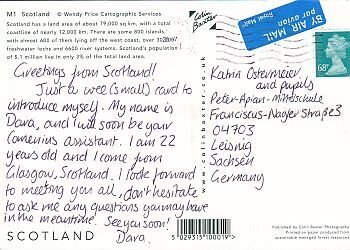 M1 SCOTLAND © Wendy Price Cartographic Services
Scotland has a land area of about 79,000 sq km, with a total
coastline of nearly 12,000 km. There are some 800 islands,
with almost 600 of them lying off the west coast; over 30,000
freshwater lochs and 6600 river systems. Scotland's population
of 5.1 million live in only 3% of the total land area.
Greetings from Scotland!
Just a wee (small) card to
introduce myself. My name is
Dara, and I will soon be your
Comenius assistant. I am 22
years old and I come from
Glasgow, Scotland. I look forward
to meeting you all, don't hesitate
to ask me any questions you may have
in the meantime. See you soon!
Dara.
SCOTLAND
5 029315 100019 >
www.colinbaxter.co.uk
Colin
Baxter
BY AIR MAIL
par avion
Royal Mail
68
Katrin Ostermeier
and pupils
Peter-Apian-Mittelschule
Franciscus-Nagler Straße 3
04703
Leisnig
Sachsen
Germany
Published by Colin Baxter Photography
Printed on paper produced from
sustainable managed forest resources